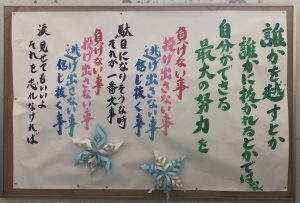 誰かを越すとか
誰かに抜かれるとかでは
なく
自分ができる
最大の努力を
負けない事
投げ出さない事
逃げ出さない事
信じ抜く事
駄目になりそうな時
それが一番大事
負けない事
投げ出さない事
逃げ出さない事
信じ抜く事
涙見せてもいいよ
それを忘れなければ